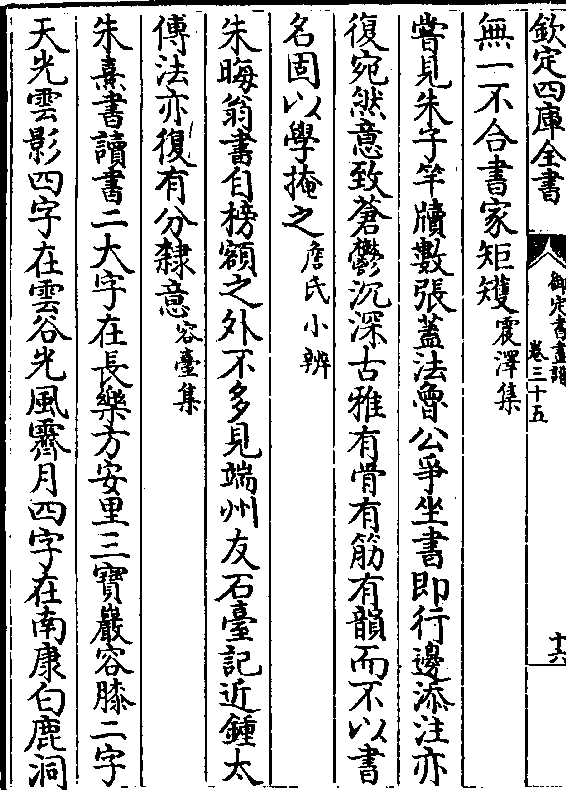 欽定四庫全書
御定書畫譜
卷三十五
十六
無一不合書家矩矱震澤集
嘗見朱子竿牘數張蓋法魯公爭坐書即行邊添注亦
復宛然意致蒼鬱沉深古雅有骨有筋有韻而不以書
名固以學掩之詹氏小辨
朱晦翁書自榜額之外不多見端州友石臺記近鍾太
傅法亦復有分隸意容臺集
朱熹書讀書二大字在長樂方安里三寶巖容膝二字
天光雲影四字在雲谷光風霽月四字在南康白鹿洞